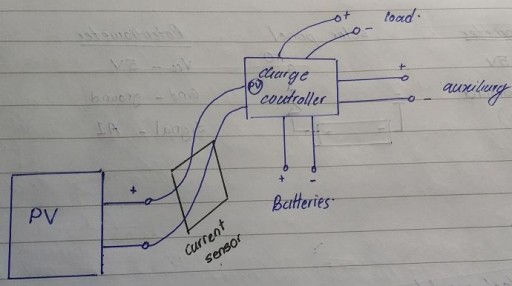 +
load.
-
charge
PV
controller
+
auxiliary
-
+
-
Batteries.
PV
+
current
sensor